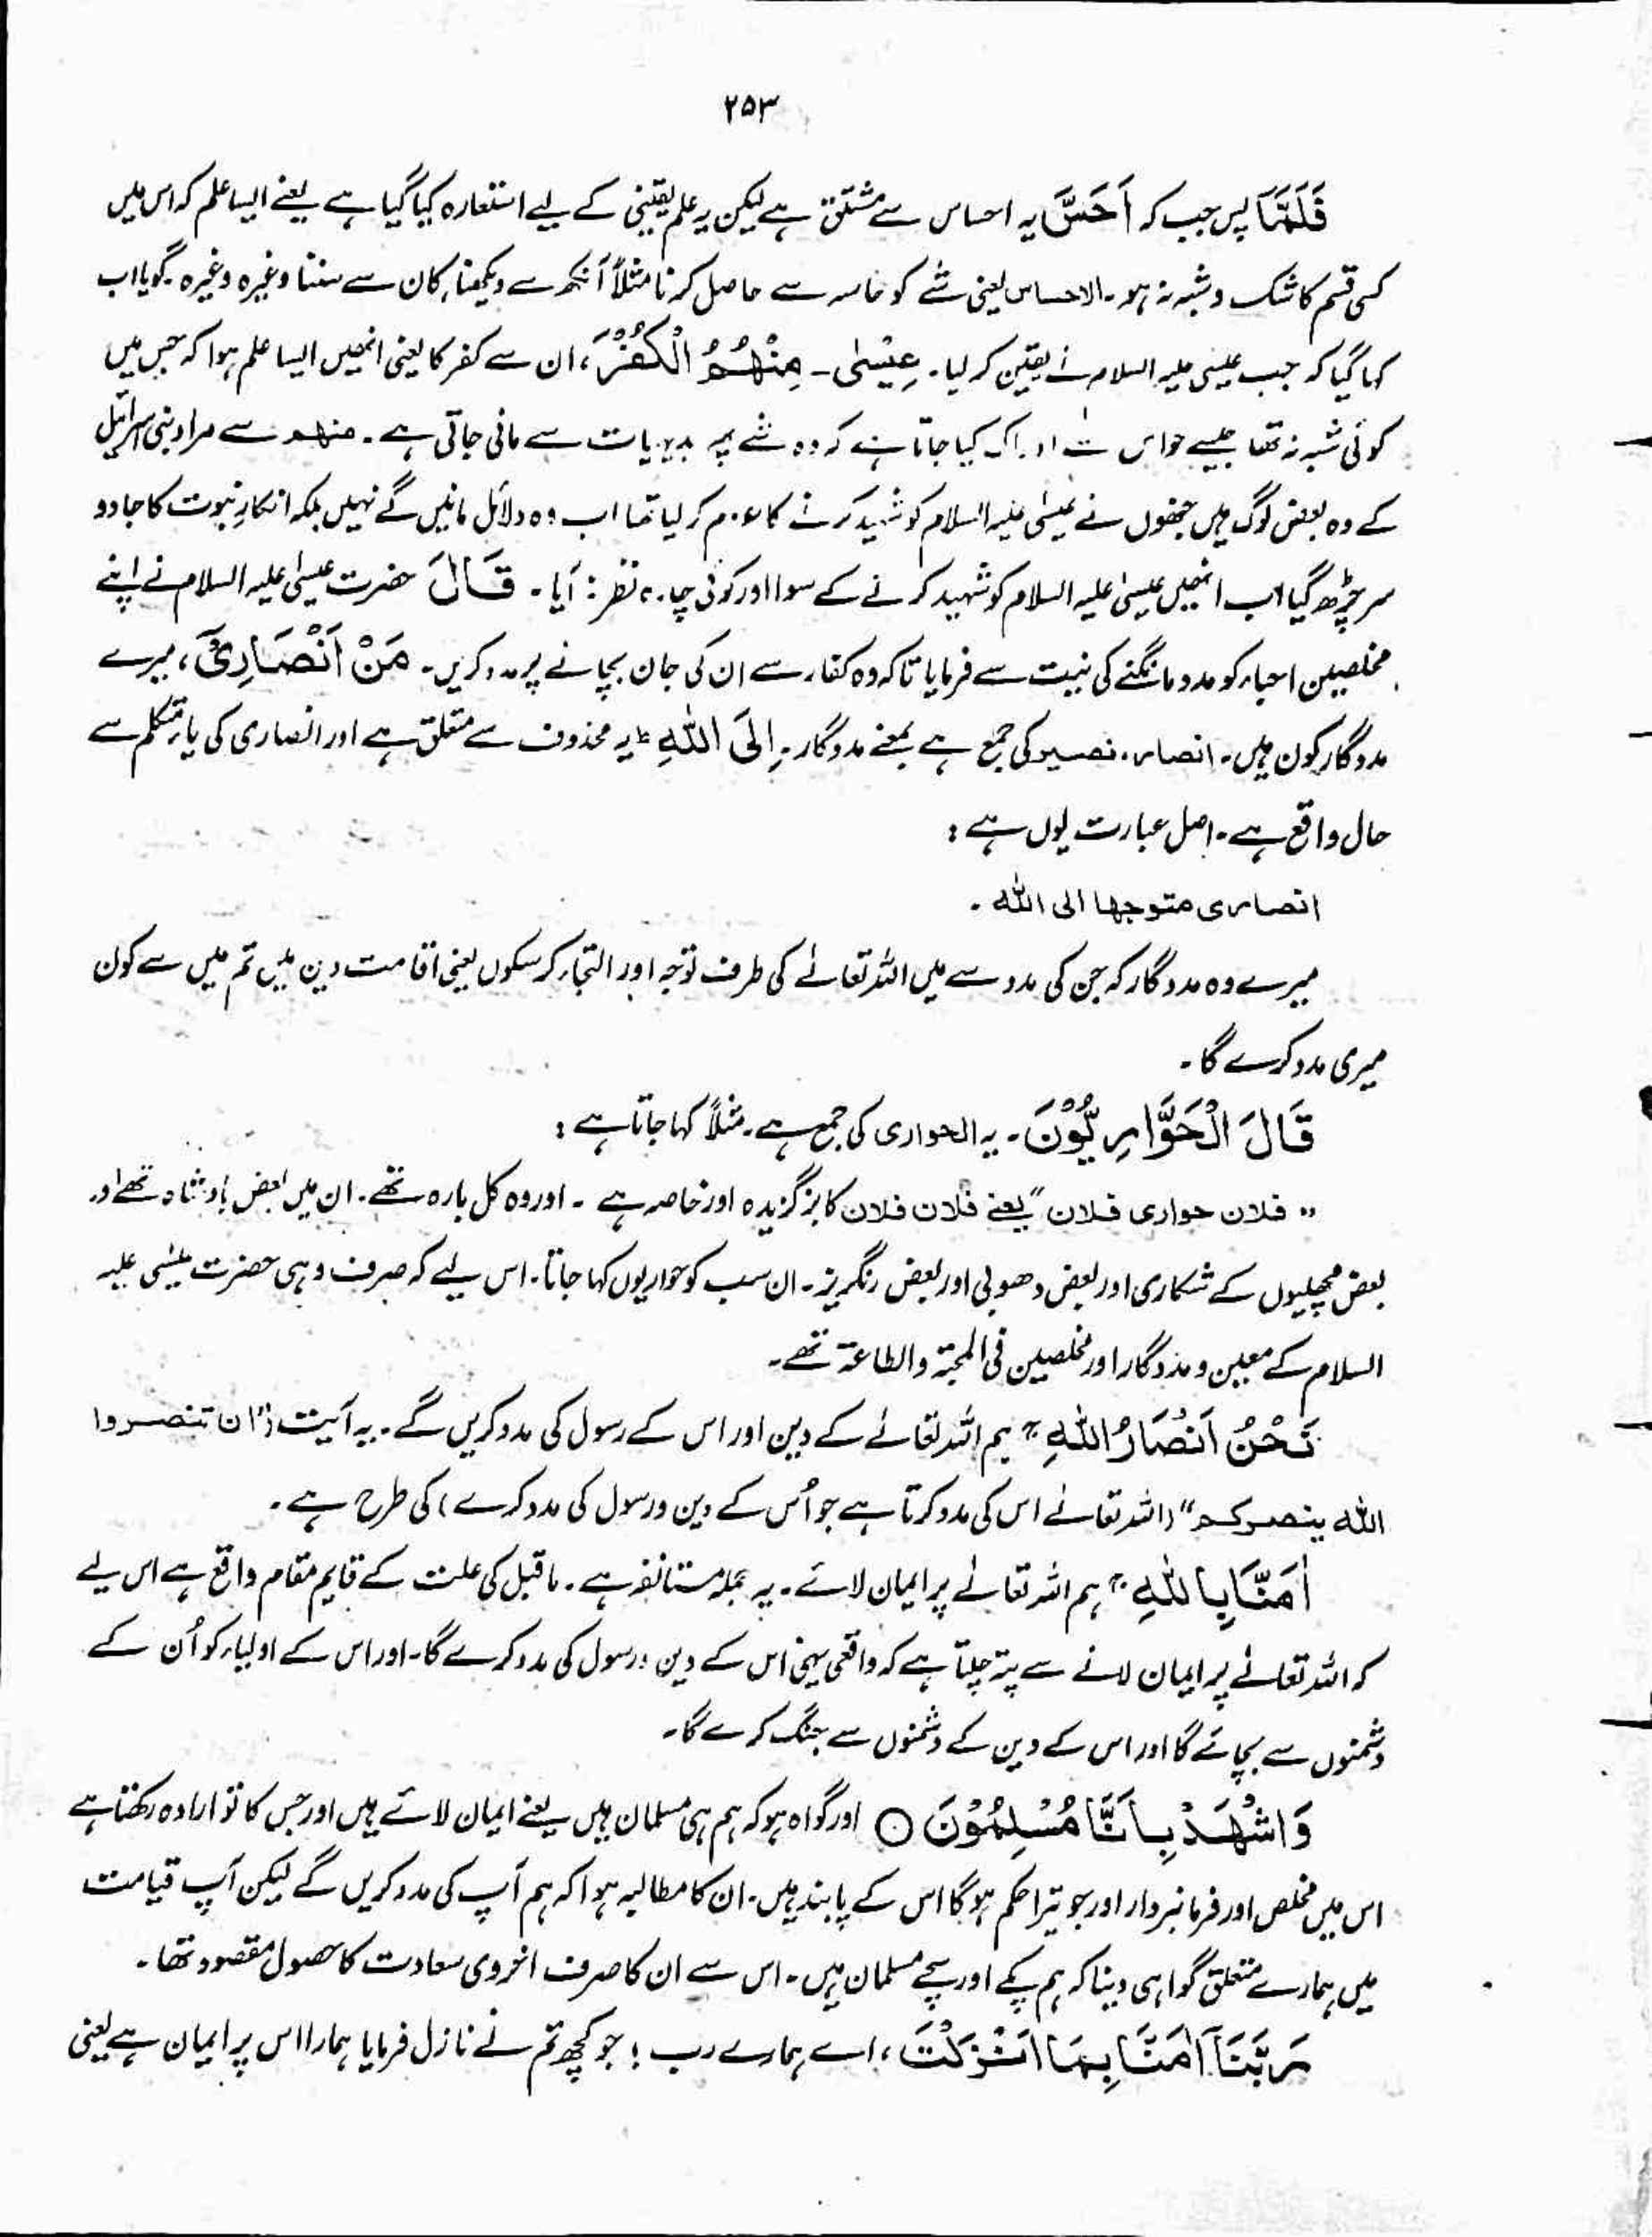 ۲۵۳
فَلَمَّآ پس جب کہ اَحَسَّ یہ احساس سے مشتق ہے لیکن یہ علم یقینی کے لیے استعارہ کیا گیا ہے یعنے ایسا علم کہ اس میں
کسی قسم کا شک و شبہ نہ ہو۔ الاحساس یعنی شے کو حاسہ سے حاصل کرنا مثلاً آنکھ سے دیکھنا، کان سے سننا وغیرہ وغیرہ۔ گویا اب
کہا گیا کہ جب عیسٰی علیہ السلام نے یقین کر لیا۔ عِیْسٰی۔ مِنْھُمُ الْکُفْرَ، ان سے کفر کا یعنی انھیں ایسا علم ہوا کہ جس میں
کوئی شبہ نہ تھا جیسے حواس سے ادراک کیا جاتا ہے کہ وہ شے بدیہیات سے مانی جاتی ہے۔ منھم سے مراد بنی اسرائیل
کے وہ بعض لوگ ہیں جنھوں نے عیسٰی علیہ السلام کو شہید کرنے کا عزم کر لیا تھا اب وہ دلائل مانیں گے نہیں بلکہ انکارِ نبوت کا جادو
سر چڑھ گیا اب انھیں عیسٰی علیہ السلام کو شہید کرنے کے سوا اور کوئی چارہ نظر نہ آیا۔ قَالَ حضرت عیسٰی علیہ السلام نے اپنے
مخلصین احباء کو مدد مانگنے کی نیت سے فرمایا تاکہ وہ کفار سے ان کی جان بچانے پر مدد کریں۔ مَنْ اَنْصَارِیْٓ، میرے
مددگار کون ہیں۔ انصار، نصیر کی جمع ہے بمعنے مددگار۔ اِلَی اللّٰہِ ط یہ محذوف سے متعلق ہے اور انصاری کی یائے متکلم سے
حال واقع ہے۔ اصل عبارت یوں ہے :
انصاری متوجھا الی اللّٰہ ۔
میرے وہ مددگار کہ جن کی مدد سے میں اللہ تعالٰے کی طرف توجہ اور التجاء کر سکوں یعنی اقامت دین میں تم میں سے کون
میری مدد کرے گا۔
قَالَ الْحَوَّارِیُّوْنَ۔ یہ الحواری کی جمع ہے۔ مثلاً کہا جاتا ہے :
"فلان حواری فلان" یعنے فلان فلان کا برگزیدہ اور خاصہ ہے ۔ اور وہ کل بارہ تھے۔ ان میں بعض بادشاہ تھے اور
بعض مچھلیوں کے شکاری اور بعض دھوبی اور بعض رنگریز۔ ان سب کو حواریوں کہا جاتا۔ اس لیے کہ صرف وہی حضرت عیسٰی علیہ
السلام کے معین و مددگار اور مخلصین فی المحبۃ والطاعۃ تھے۔
نَحْنُ اَنْصَارُ اللّٰہِ ج ہم اللہ تعالٰے کے دین اور اس کے رسول کی مدد کریں گے۔ یہ آیت "ان تنصروا
اللّٰہ ینصرکم" (اللہ تعالٰے اس کی مدد کرتا ہے جو اُس کے دین و رسول کی مدد کرے) کی طرح ہے۔
اٰمَنَّا بِاللّٰہِ ج ہم اللہ تعالٰے پر ایمان لائے۔ یہ جملہ مستانفہ ہے۔ ماقبل کی علت کے قایم مقام واقع ہے اس لیے
کہ اللہ تعالٰے پر ایمان لانے سے پتہ چلتا ہے کہ واقعی یہی اس کے دین و رسول کی مدد کرے گا۔ اور اس کے اولیاء کو اُن کے
دشمنوں سے بچائے گا اور اس کے دین کے دشمنوں سے جنگ کرے گا۔
وَاشْھَدْ بِاَنَّا مُسْلِمُوْنَ ○ اور گواہ ہو کہ ہم ہی مسلمان ہیں یعنے ایمان لائے ہیں اور جس کا تو ارادہ رکھتا ہے
اس میں مخلص اور فرمانبردار اور جو تیرا حکم ہو گا اس کے پابند ہیں۔ ان کا مطالبہ ہوا کہ ہم آپ کی مدد کریں گے لیکن آپ قیامت
میں ہمارے متعلق گواہی دینا کہ ہم پکے اور سچے مسلمان ہیں۔ اس سے ان کا صرف اخروی سعادت کا حصول مقصود تھا۔
رَبَّنَآ اٰمَنَّا بِمَآ اَنْزَلْتَ، اے ہمارے رب ! جو کچھ تم نے نازل فرمایا ہمارا اس پر ایمان ہے یعنی